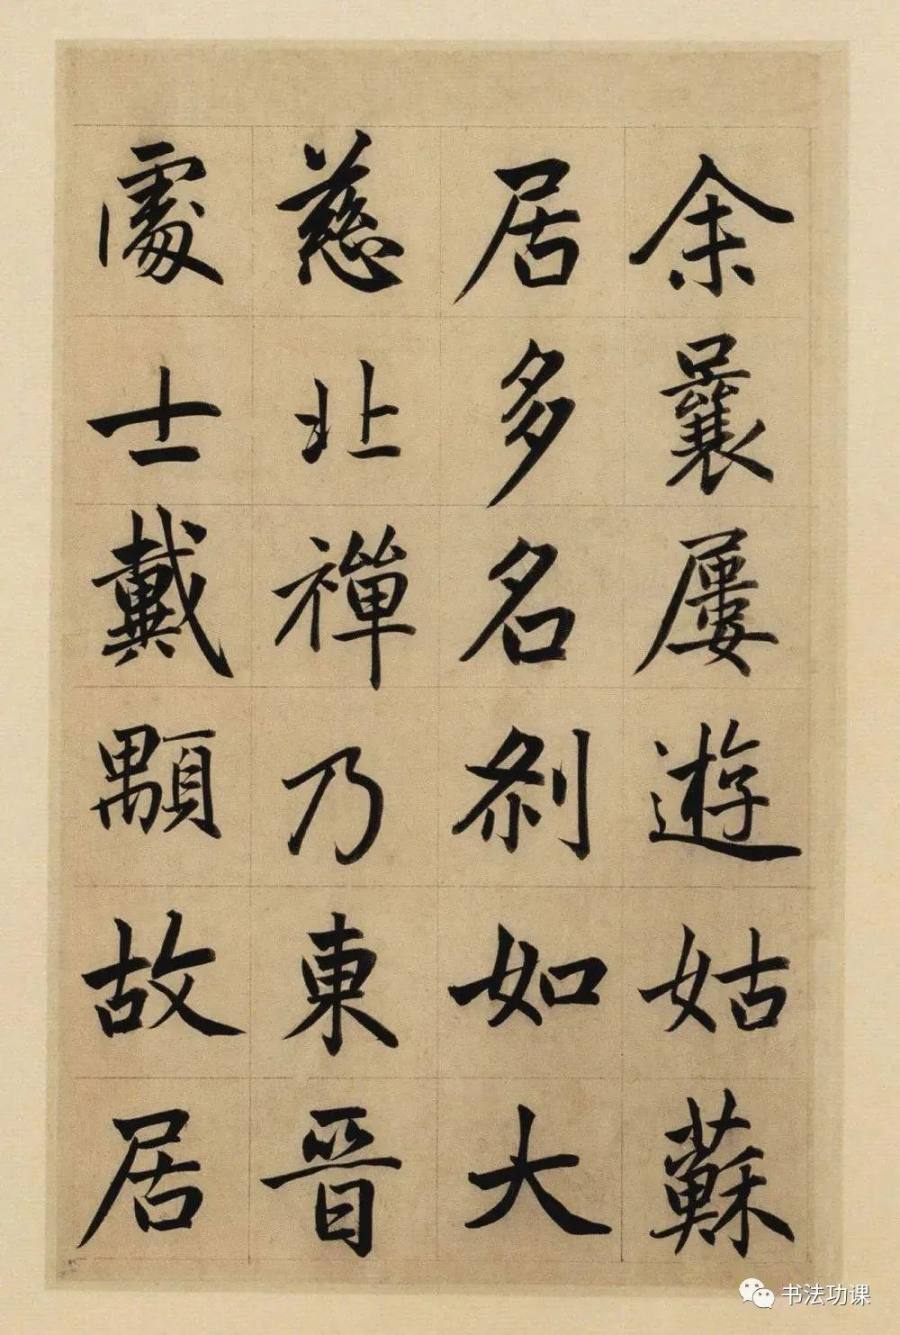 余曩屢遊姑蘇
居多名剎如大
慈北禪乃東晉
處士戴顒故居
书法功课